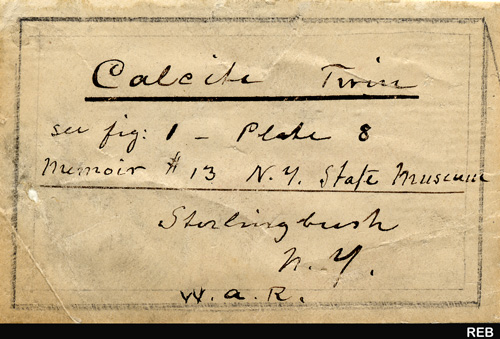 Calcite Twin
see fig: 1 - Plate 8
Memoir #13 N.Y. State Museum
Sterlingbush
N.Y.
W.a.R.
REB